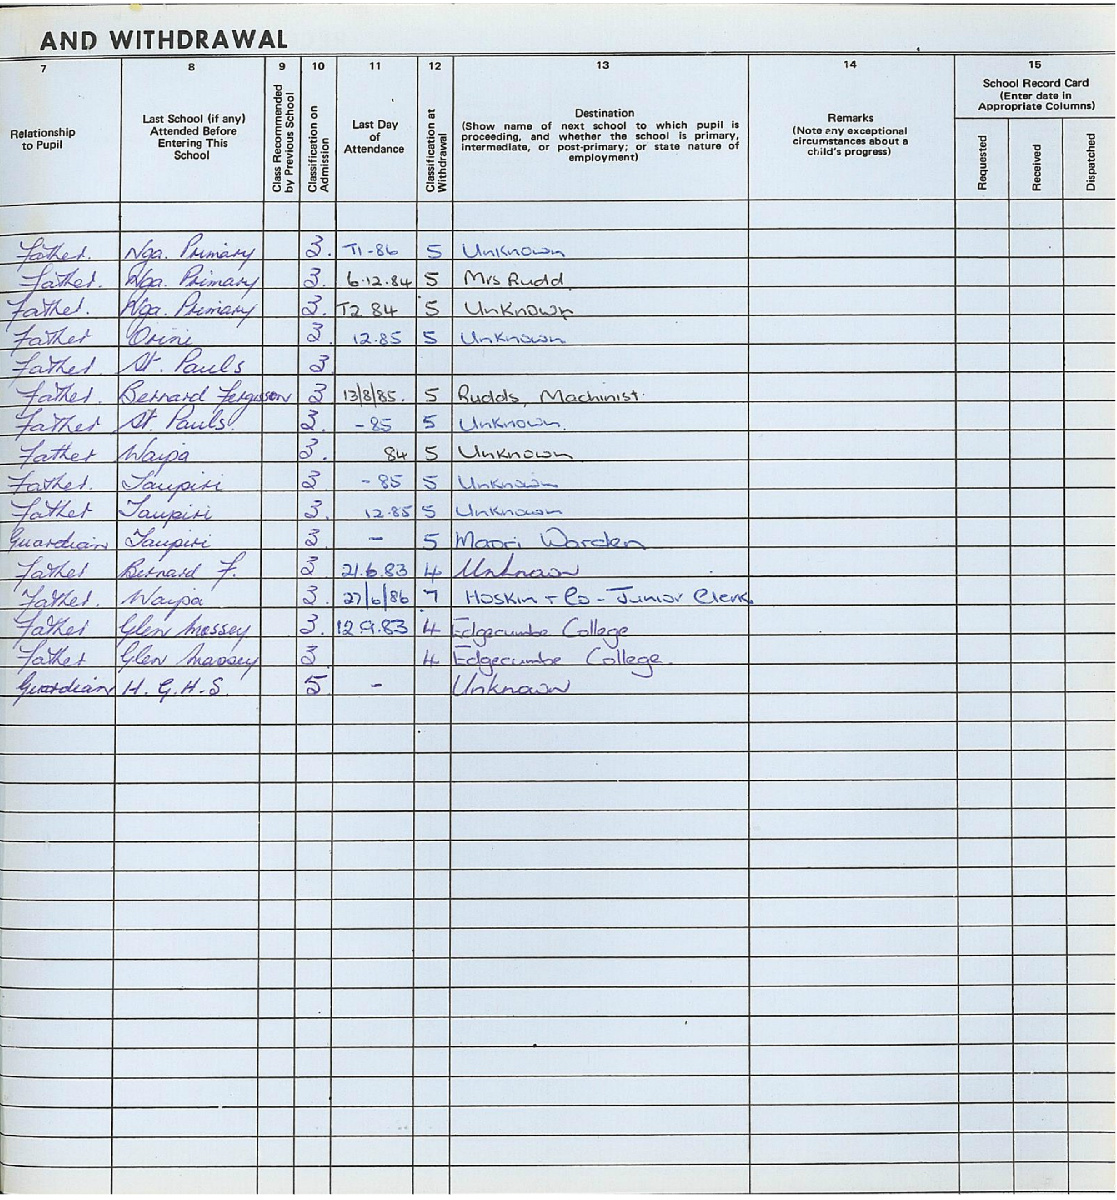 AND WITHDRAWAL
7 8 9 10 11 12 13 14 15
Relationship to Pupil
Last School (if any) Attended Before Entering This School
Class Recommended by Previous School
Classification on Admission
Last Day of Attendance
Classification at Withdrawal
Destination
(Show name of next school to which pupil is proceeding, and whether the school is primary, intermediate, or post-primary; or state nature of employment)
Remarks
(Note any exceptional circumstances about a child's progress)
School Record Card
(Enter date in Appropriate Columns)
Requested
Received
Dispatched
Father. Nga. Primary 3. T1-86 5 Unknown
Father. Nga. Primary 3. 6.12.84 5 Mrs Rudd.
Father. Nga. Primary 3. T2 84 5 Unknown
Father Orini 3. 12.85 5 Unknown
Father. St. Pauls 3
Father. Bernard Fergusson 3 13/8/85. 5 Rudds, Machinist.
Father St. Pauls. 3. -85 5 Unknown.
Father Waipa 3. 84 5 Unknown
Father. Taupiri 3. -85 5 Unknown
Father Taupiri 3. 12.85 5 Unknown
Guardian Taupiri 3. - 5 Maori Warden
Father Bernard F. 3 21.6.83 4 Unknown
Father. Waipa 3. 27/6/86 7 Hoskin + Co - Junior Clerk.
Father Glen Massey 3. 12.9.83 4 Edgecumbe College
Father Glen Massey 3 4 Edgecumbe College.
Guardian H. G. H. S. 5 - Unknown